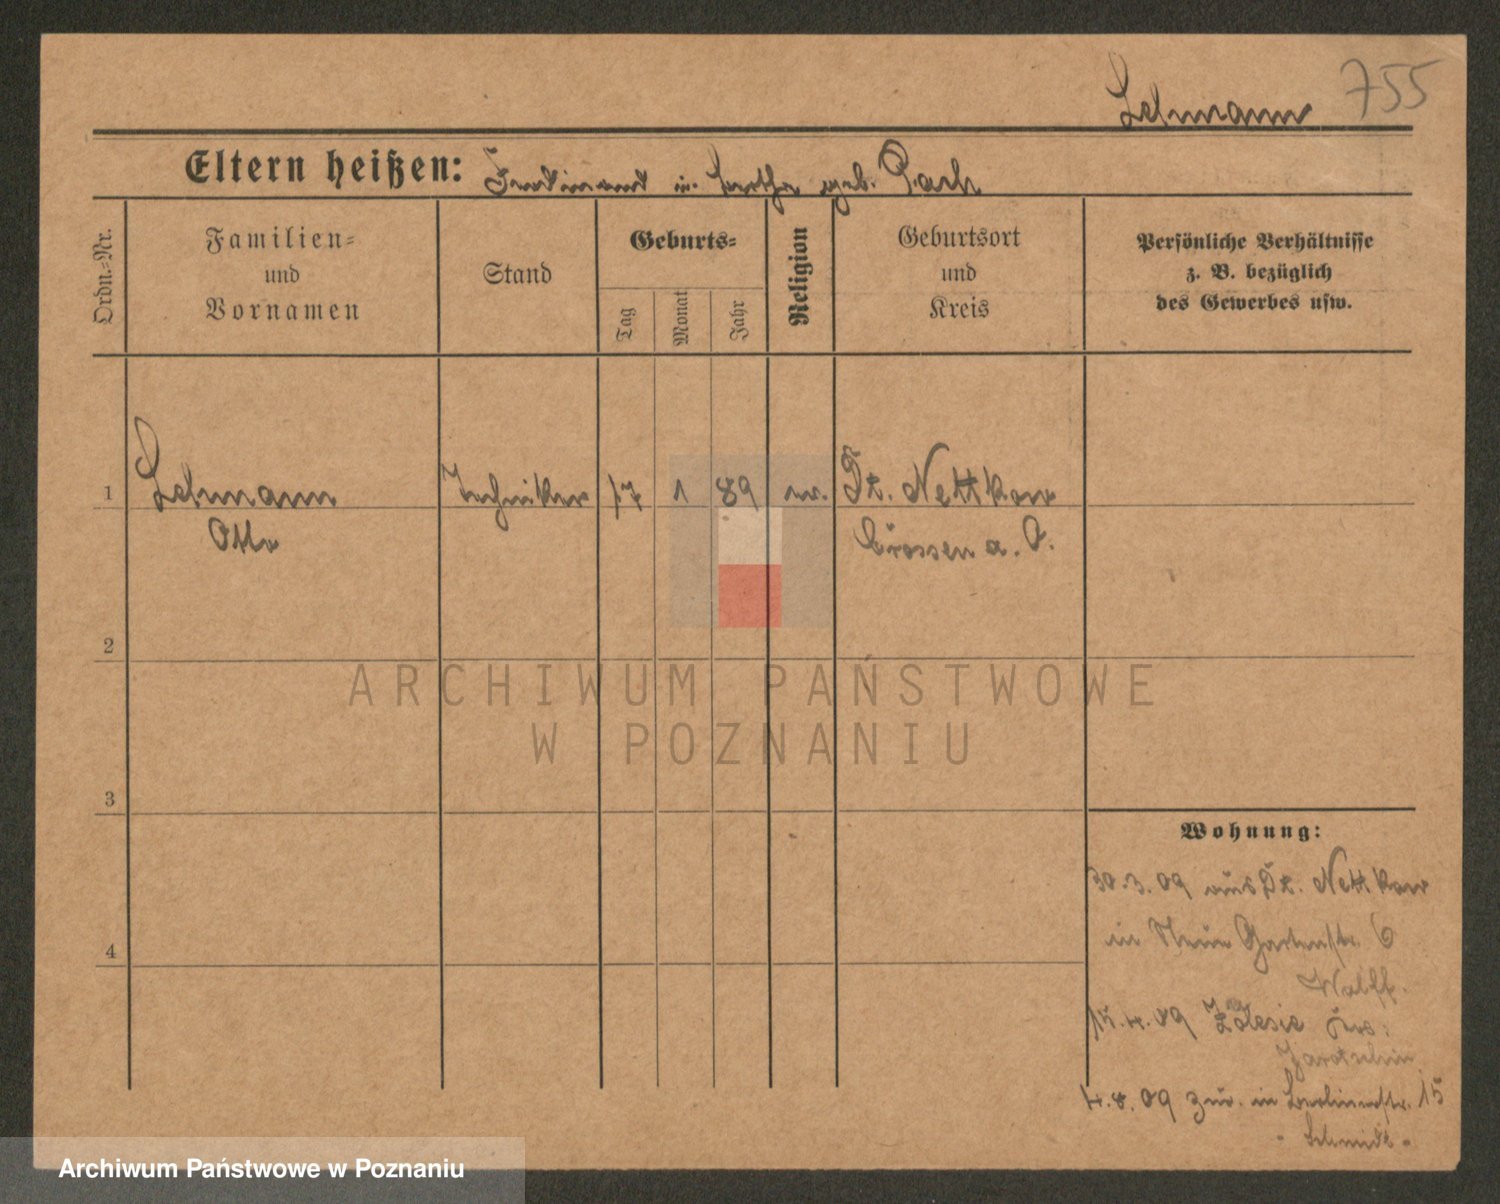 Lehmann 755
Eltern heißen: Ferdinand u. Bertha geb. Pach
Ordn.=Nr.
Familien=
und
Vornamen
Stand
Geburts=
Tag
Monat
Jahr
Religion
Geburtsort
und
Kreis
Persönliche Verhältnisse
z. B. bezüglich
des Gewerbes usw.
1 Lehmann Techniker 17 1 89 ev. Dt. Nettkow
Otto Crossen a. O.
2
3
4
Wohnung:
30.3.09 aus Dt. Nettkow
in Neue Gartenstr. 6
Wolff.
15.4.09 Zolesie Krs:
Jarotschin
4.8.09 zur. in Berlinerstr. 15
- Schmidt -
ARCHIWUM PAŃSTWOWE
W POZNANIU
Archiwum Państwowe w Poznaniu